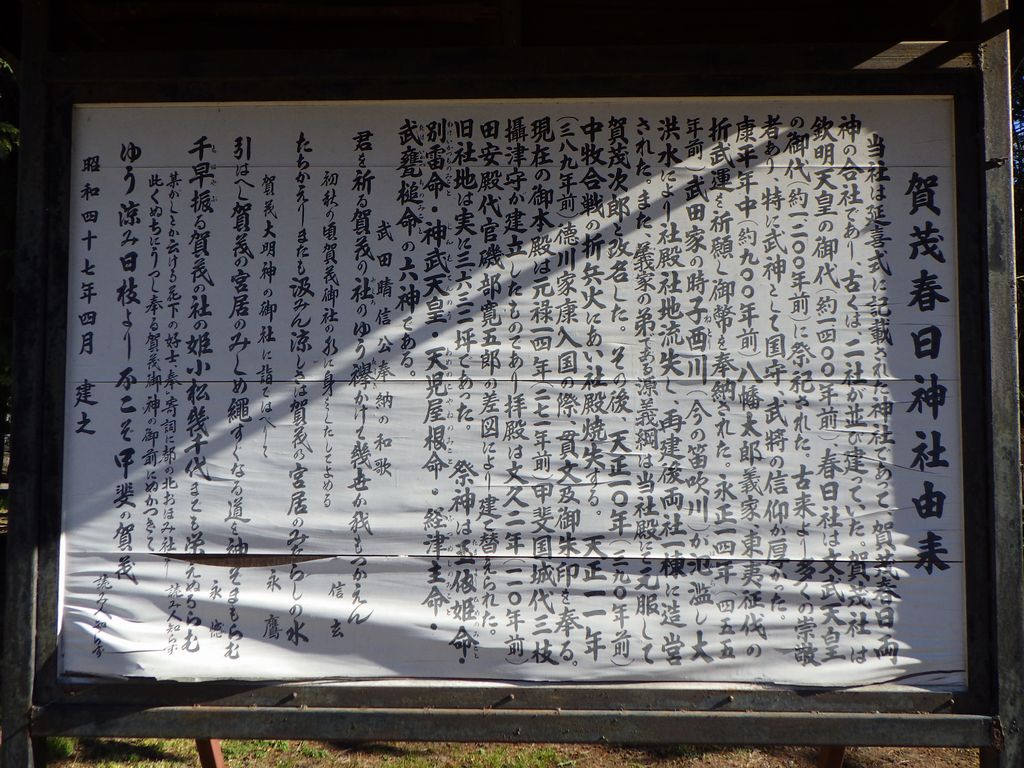 賀茂春日神社由来
当社は延喜式に記載された神社であって、賀茂春日両
神の合社であり、古くは二社が並び建っていた。賀茂社は
欽明天皇の御代（約一四〇〇年前）春日社は文武天皇
の御代（約一二〇〇年前）に祭祀された。古来より多くの崇敬
者あり、特に武神として国守、武将の信仰か厚かた。
康平年中（約九〇〇年前）八幡太郎義家、東夷征伐の
折武運を祈願し御幣を奉納された。永正一四年（四五五
年前）武田家の時子酉川（今の笛吹川）が氾濫し大
洪水により社殿社地流失し、再建後両社一棟に造営
された。また、義家の弟である源義綱は当社殿にて元服して
賀茂次郎と改名した。その後、天正一〇年（三九〇年前）
中牧合戦の折兵火にあい社殿焼失する。天正一一年
（三八九年前）徳川家康入国の際、貢文及御朱印を奉る。
現在の御本殿は元禄一四年（二七一年前）甲斐国城代三枝
攝津守か建立したものであり拝殿は文久二年（一一〇年前）
田安殿代官磯部寛五郎の差図により建て替えられた。
旧社地は実に三六三三坪であった。　祭神は玉依姫命・
別雷命・神武天皇・天児屋根命・経津主命・
武甕槌命の六神である。
武田晴信公奉納の和歌
君を祈る賀茂の社のゆう襷かけて幾世か我もつかえん
信玄
初秋の頃賀茂御社の
たちかえりまたも汲みん涼しさは賀茂の宮居のみたらしの水
永鷹
賀茂大明神の御社に詣ではへりて
引はへし賀茂の宮居のみしめ縄すくなる道を神そまもらむ
千早振る賀茂の社の姫小松幾千代までも栄えぬらむ
読み人知らず
此くぬちにうつし奉る賀茂御神の御前にぬかつきて
ゆう涼み日枝より不こそ甲斐の賀茂
読み人知らず
昭和四十七年四月　建之